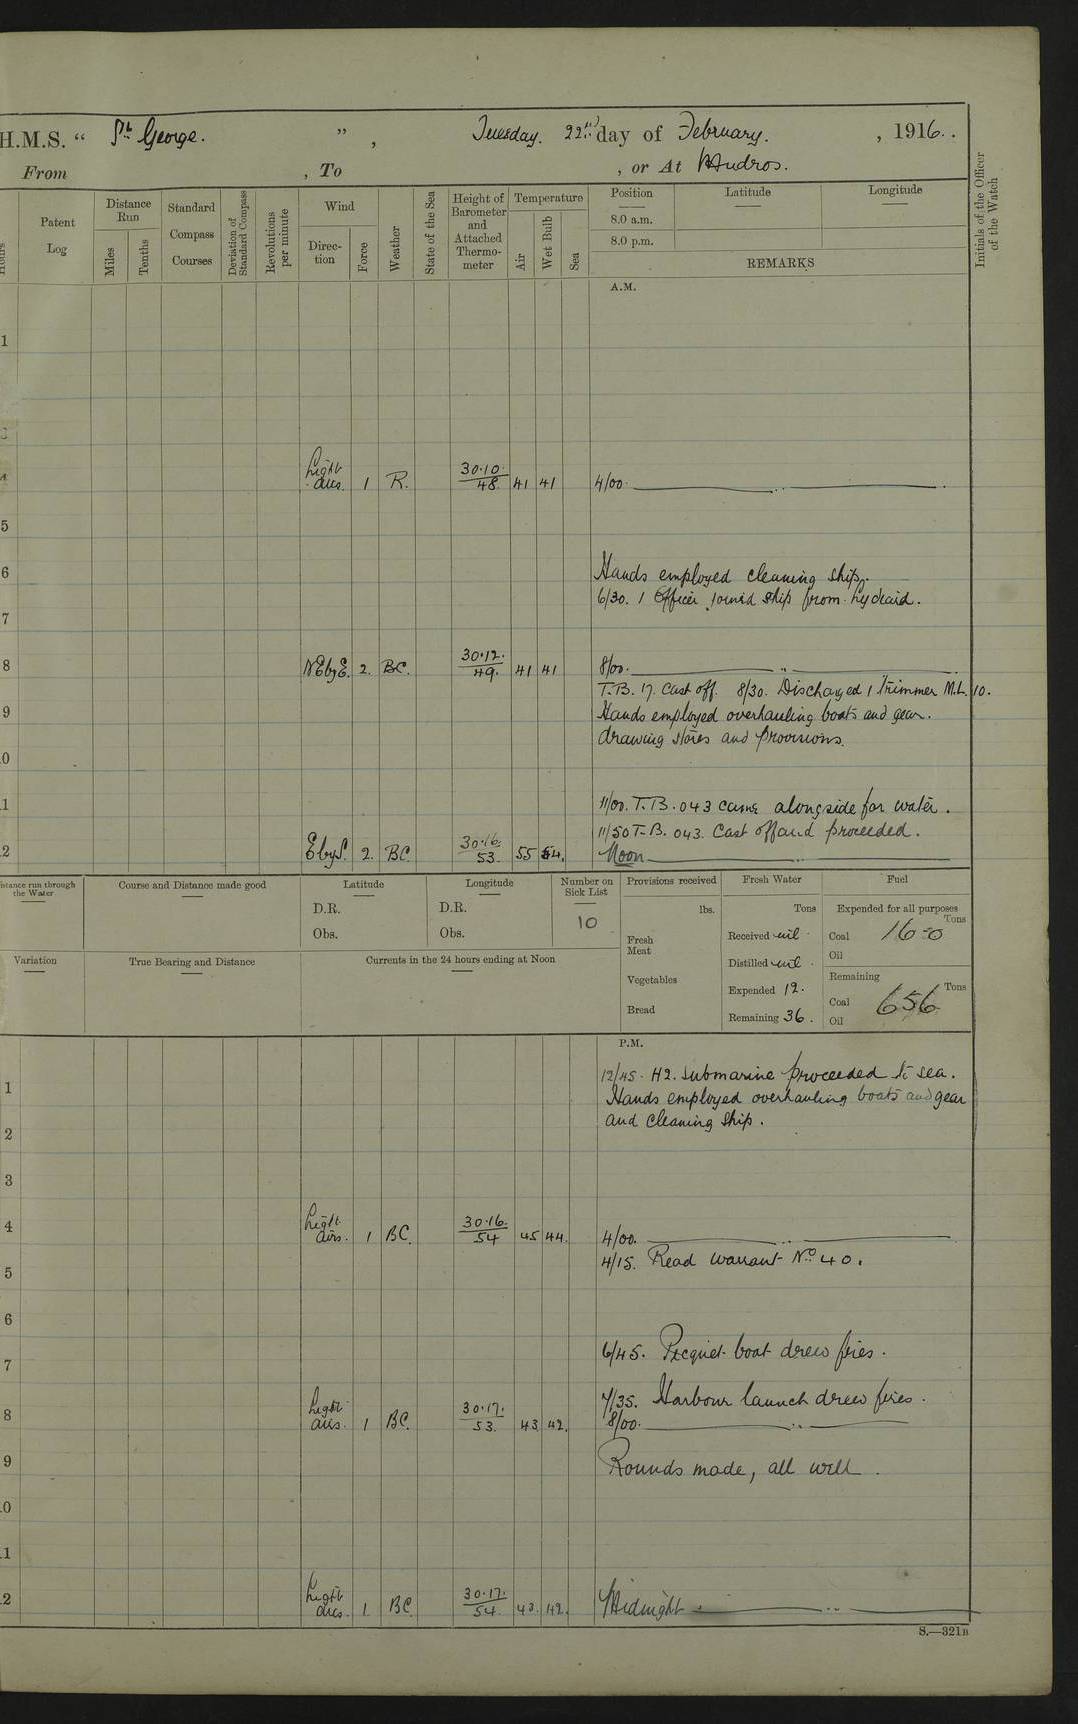 H.M.S. “ St. George. ” , Tuesday. 22nd day of February. , 1916.
From , To , or At Mudros.
Hours
Patent Log
Distance Run
Miles
Tenths
Standard Compass Courses
Deviation of Standard Compass
Revolutions per minute
Wind
Direc-tion
Force
Weather
State of the Sea
Height of Barometer and Attached Thermo-meter
Temperature
Air
Wet Bulb
Sea
Position
8.0 a.m.
8.0 p.m.
Latitude
Longitude
REMARKS
Initials of the Officer of the Watch
A.M.
1
4 Light airs. 1 R. 30.10. 48. 41 41 4/00.
5
6 Hands employed cleaning ship.
6/30. 1 Officer joined ship from Hydraid.
7
8 NEbyE. 2. BC. 30.12. 49. 41 41 8/00.
T.B. 17. Cast off. 8/30. Discharged 1 Trimmer M.L. 10.
9 Hands employed overhauling boats and gear.
drawing stores and provisions.
0
1 11/00. T.B. 043 came alongside for water.
11/50 T.B. 043. Cast off and proceeded.
2 EbyS. 2. BC 30.16. 53. 55 54. Noon
Distance run through the Water
Course and Distance made good
Latitude
D.R.
Obs.
Longitude
D.R.
Obs.
Number on Sick List
10
Provisions received
lbs.
Fresh Meat
Vegetables
Bread
Fresh Water
Tons
Received nil
Distilled nil
Expended 12.
Remaining 36.
Fuel
Expended for all purposes
Tons
Coal 16-0
Oil
Remaining
Tons
Coal 656
Oil
Variation
True Bearing and Distance
Currents in the 24 hours ending at Noon
P.M.
12/45. H2. submarine proceeded to sea.
1 Hands employed overhauling boats and gear
and cleaning ship.
2
3
4 Light airs. 1 BC. 30.16. 54 45 44. 4/00.
4/15. Read Warrant No. 40.
5
6
6/45. Picquet boat drew fires.
7
7/35. Harbour launch drew fires.
8 Light airs. 1 BC. 30.17. 53. 43 42. 8/00.
9 Rounds made, all well.
0
1
2 Light airs. 1 BC. 30.17. 54. 43. 42. Midnight
S.—321B